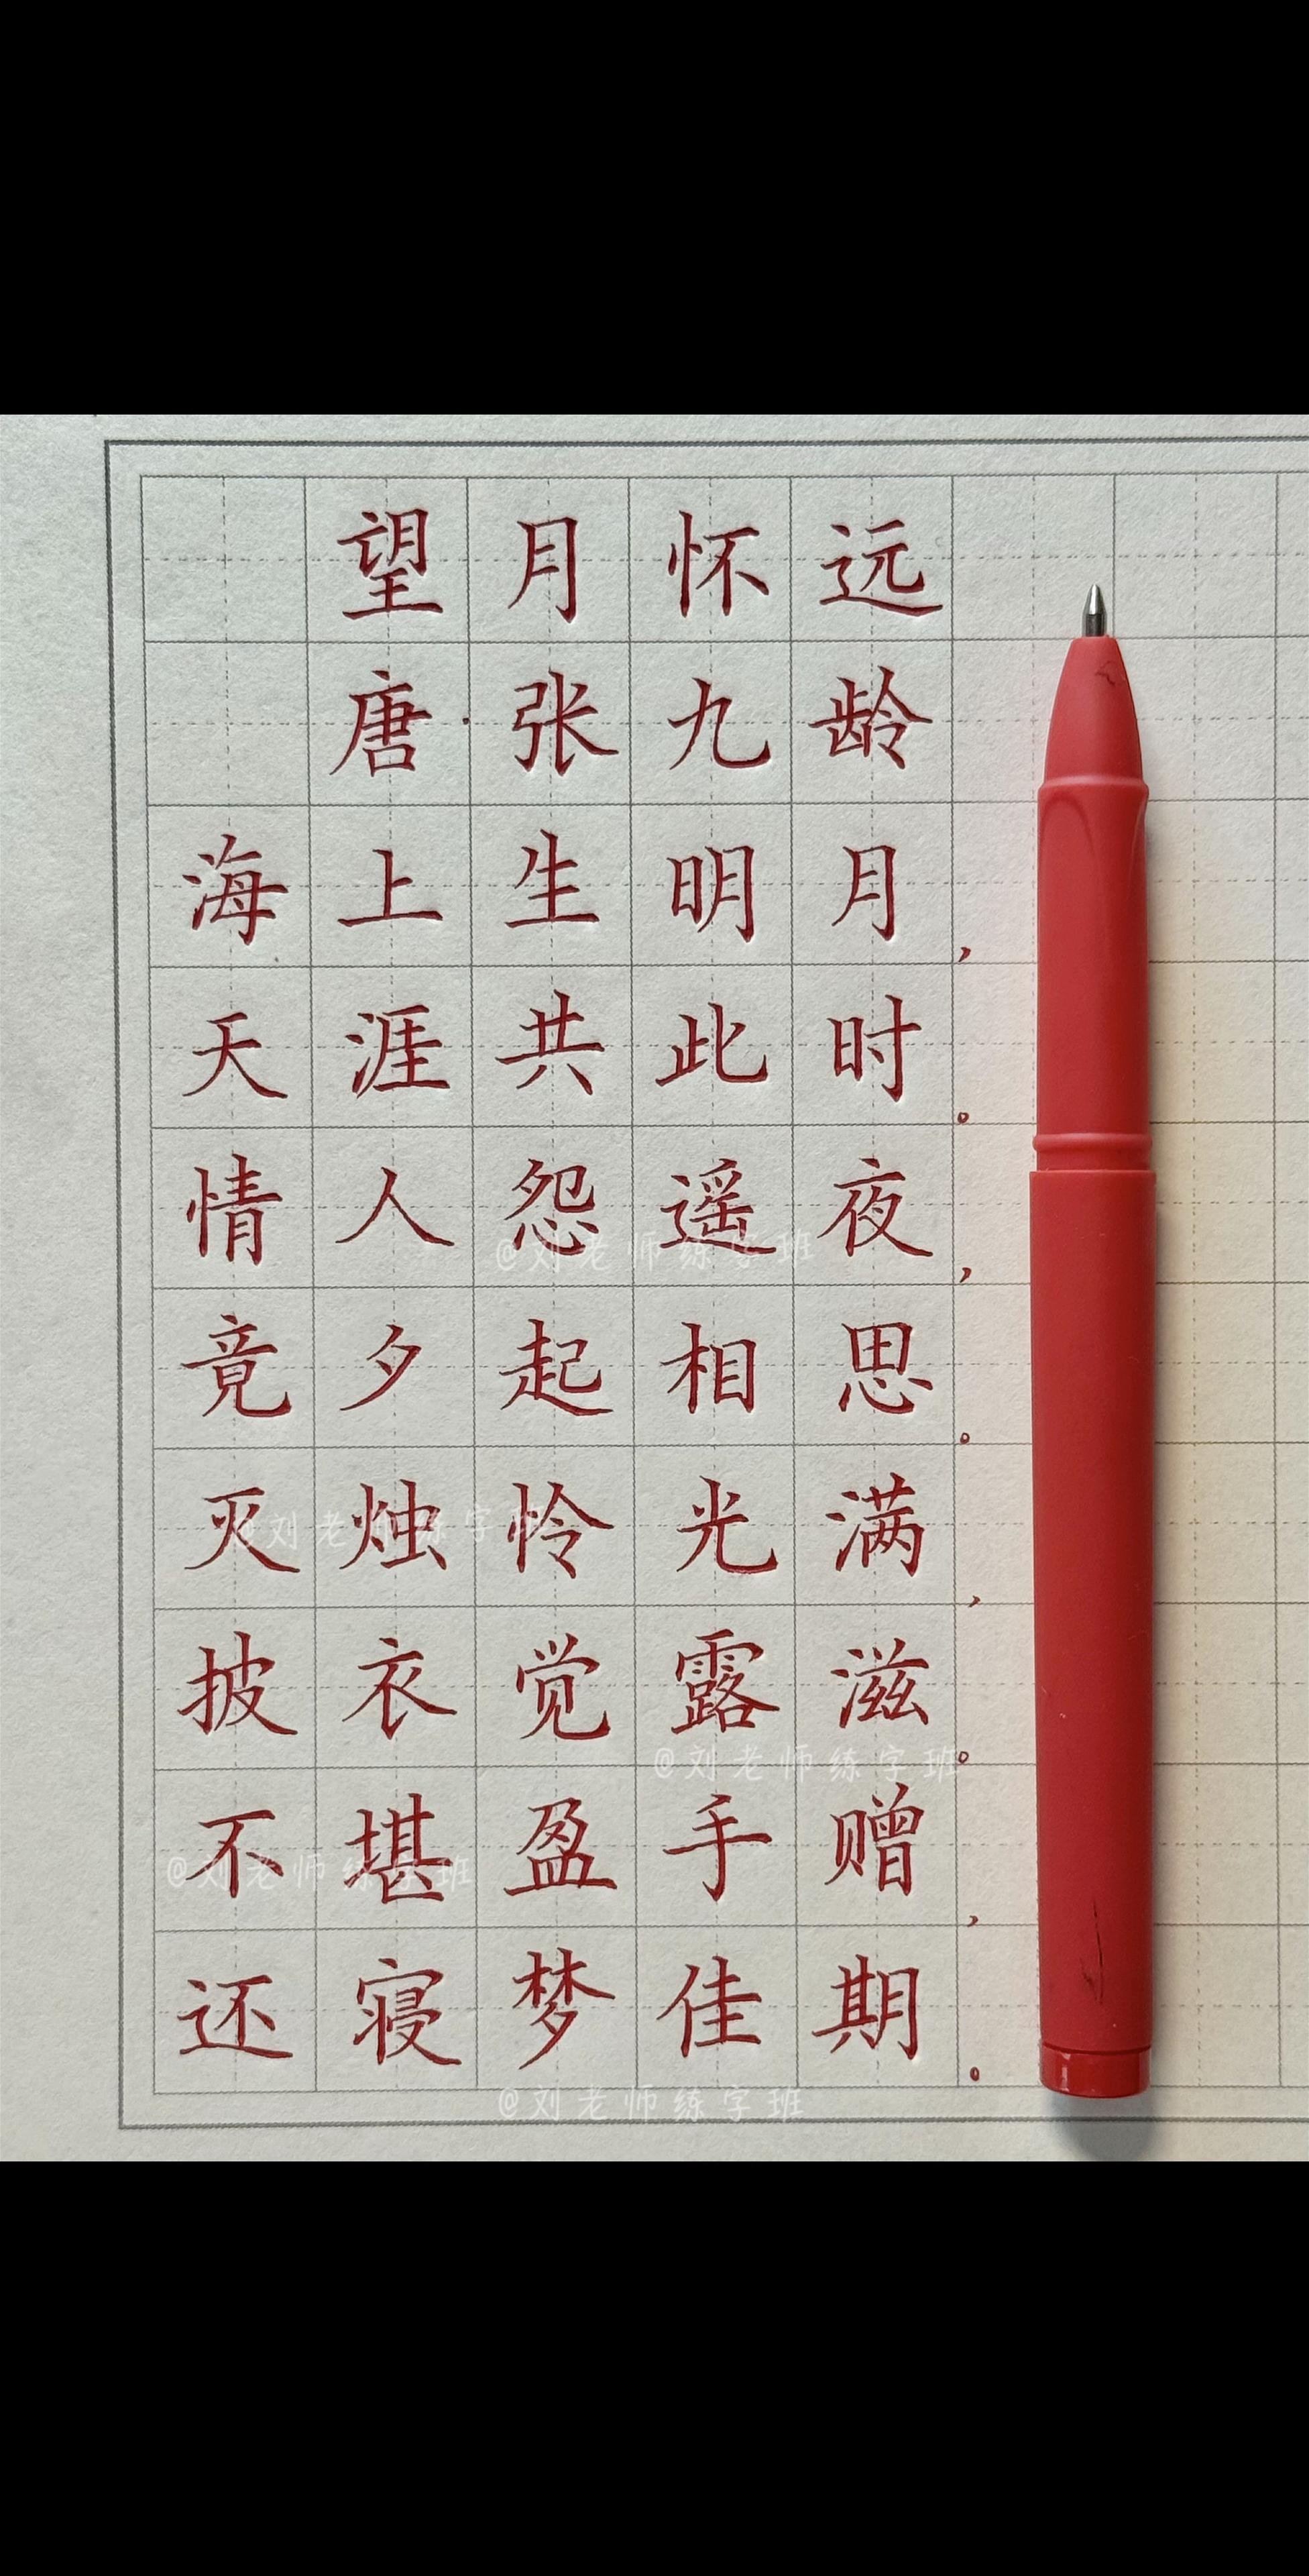 望月怀远
唐·张九龄
海上生明月，
天涯共此时。
情人怨遥夜，
竟夕起相思。
灭烛怜光满，
披衣觉露滋。
不堪盈手赠，
还寝梦佳期。
@刘老师练字班
@刘老师练字班
@刘老师练字班
@刘老师练字班
@刘老师练字班